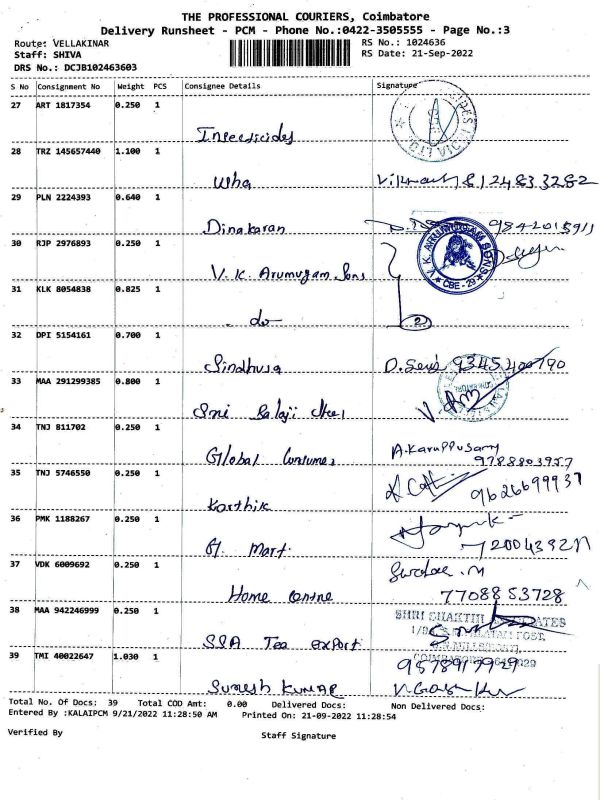 THE PROFESSIONAL COURIERS, Coimbatore
Delivery Runsheet - PCM - Phone No.:0422-3505555 - Page No.:3
Route: VELLAKINAR
Staff: SHIVA
DRS No.: DCJB102463603
RS No.: 1024636
RS Date: 21-Sep-2022
S No Consignment No Weight PCS Consignee Details Signature
27 ART 1817354 0.250 1
Insecticides
28 TRZ 145657440 1.100 1
Uha 8124833282
29 PLN 2224393 0.640 1
Dinakaran 9842015911
30 RJP 2976893 0.250 1
V. K. Arumugam Sons
V. K. ARUMUGAM SONS
CBE - 29
31 KLK 8054838 0.825 1
- do - 2
32 DPI 5154161 0.700 1
Sindhuja D. Sevi 9345200790
33 MAA 291299385 0.800 1
Sri Balaji
34 TNJ 811702 0.250 1
Global Consumer A. Karuppusamy
9788803957
35 TNJ 5746550 0.250 1
Karthik 9626699937
36 PMK 1188267 0.250 1
Mart.
37 VDK 6009692 0.250 1
Home Centre 7708853728
38 MAA 942246999 0.250 1
SHRI SHAKTHI ASSOCIATES
SSA Tea export
39 TMI 40022647 1.030 1
9578917929
Suresh Kumar
Total No. Of Docs: 39 Total COD Amt: 0.00 Delivered Docs: Non Delivered Docs:
Entered By :KALAIPCM 9/21/2022 11:28:50 AM Printed On: 21-09-2022 11:28:54
Verified By Staff Signature